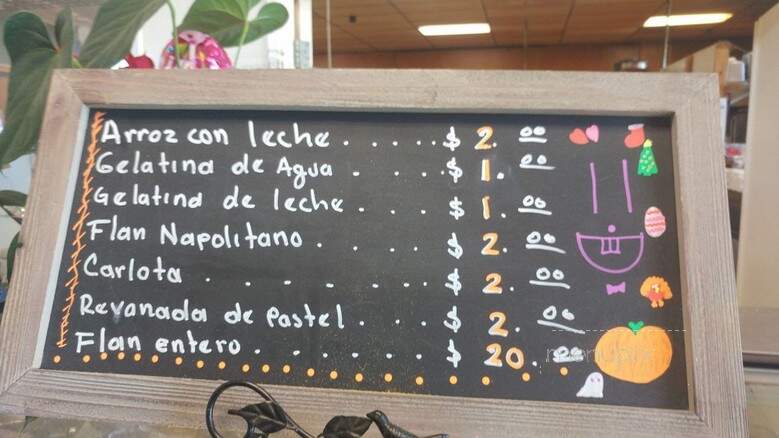 Arroz con leche . . . . . $ 2. 00
Gelatina de Agua . . . . $ 1. 00
Gelatina de leche . . . . $ 1. 00
Flan Napolitano . . . . . $ 2. 00
Carlota . . . . . . . $ 2. 00
Revanada de Pastel . . . . $ 2. 00
Flan entero . . . . . . $ 20. 00
menupix